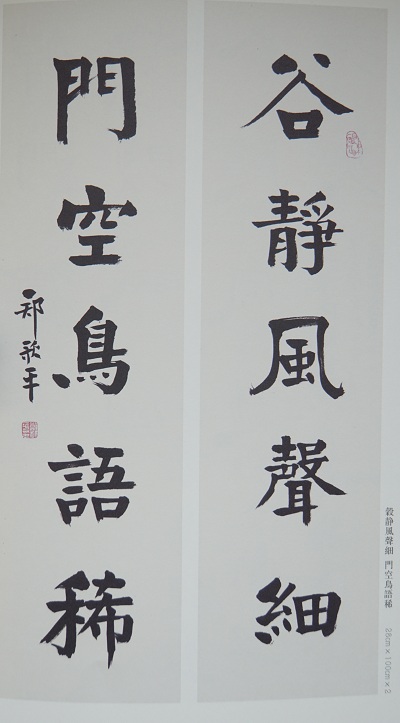 谷靜風聲細
門空鳥語稀
郑歌平
穀静風聲細 門空鳥語稀 28cm×100cm×2